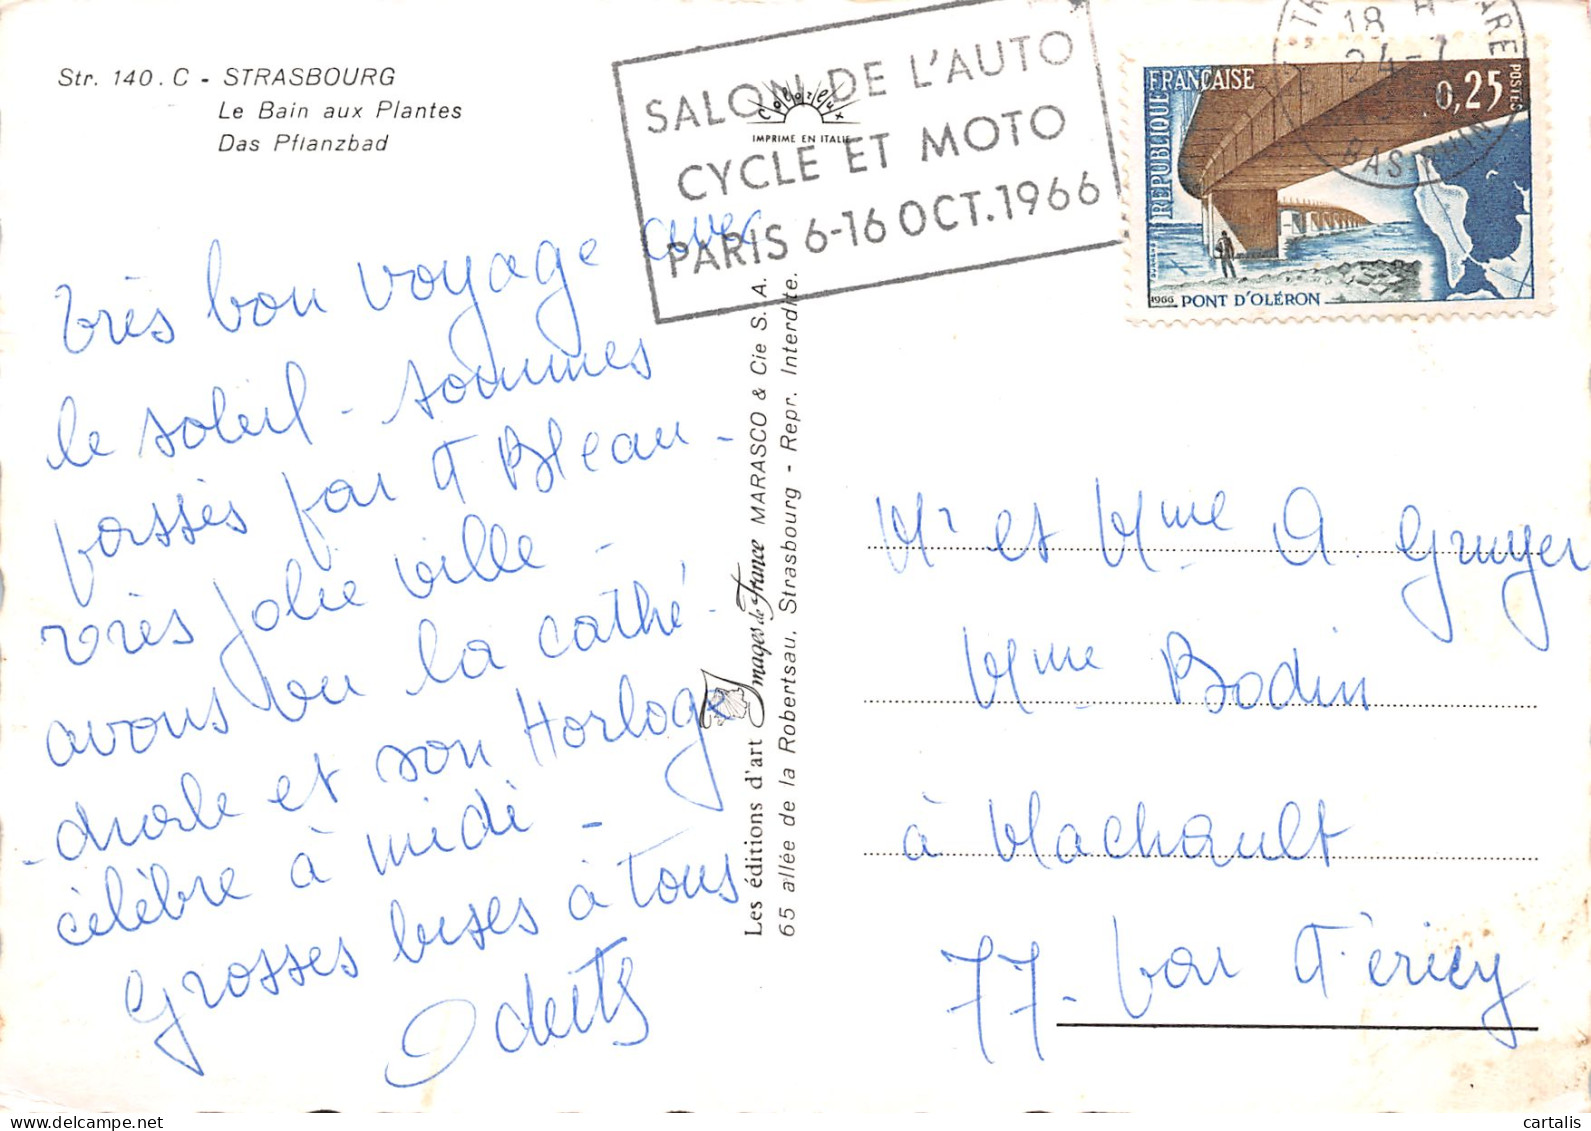 Str. 140.C - STRASBOURG
Le Bain aux Plantes
Das Pflanzbad
Colorlux
IMPRIME EN ITALIE
SALON DE L'AUTO
CYCLE ET MOTO
PARIS 6-16 OCT. 1966
18 H
24-7
RÉPUBLIQUE FRANÇAISE
0,25
POSTES
1966 PONT D'OLÉRON
très bon voyage avec
le soleil - sommes
passés par F Bleau -
très jolie ville -
avons vu la cathé-
-drale et son Horloge
célèbre à midi -
Grosses bises à tous
Les éditions d'art Images de France MARASCO & Cie S.A.
65 allée de la Robertsau, Strasbourg - Repr. Interdite.
Mr et Mme A Gruyer
Mme Bodin
à Machault
77 - par F. éricy
cartalis